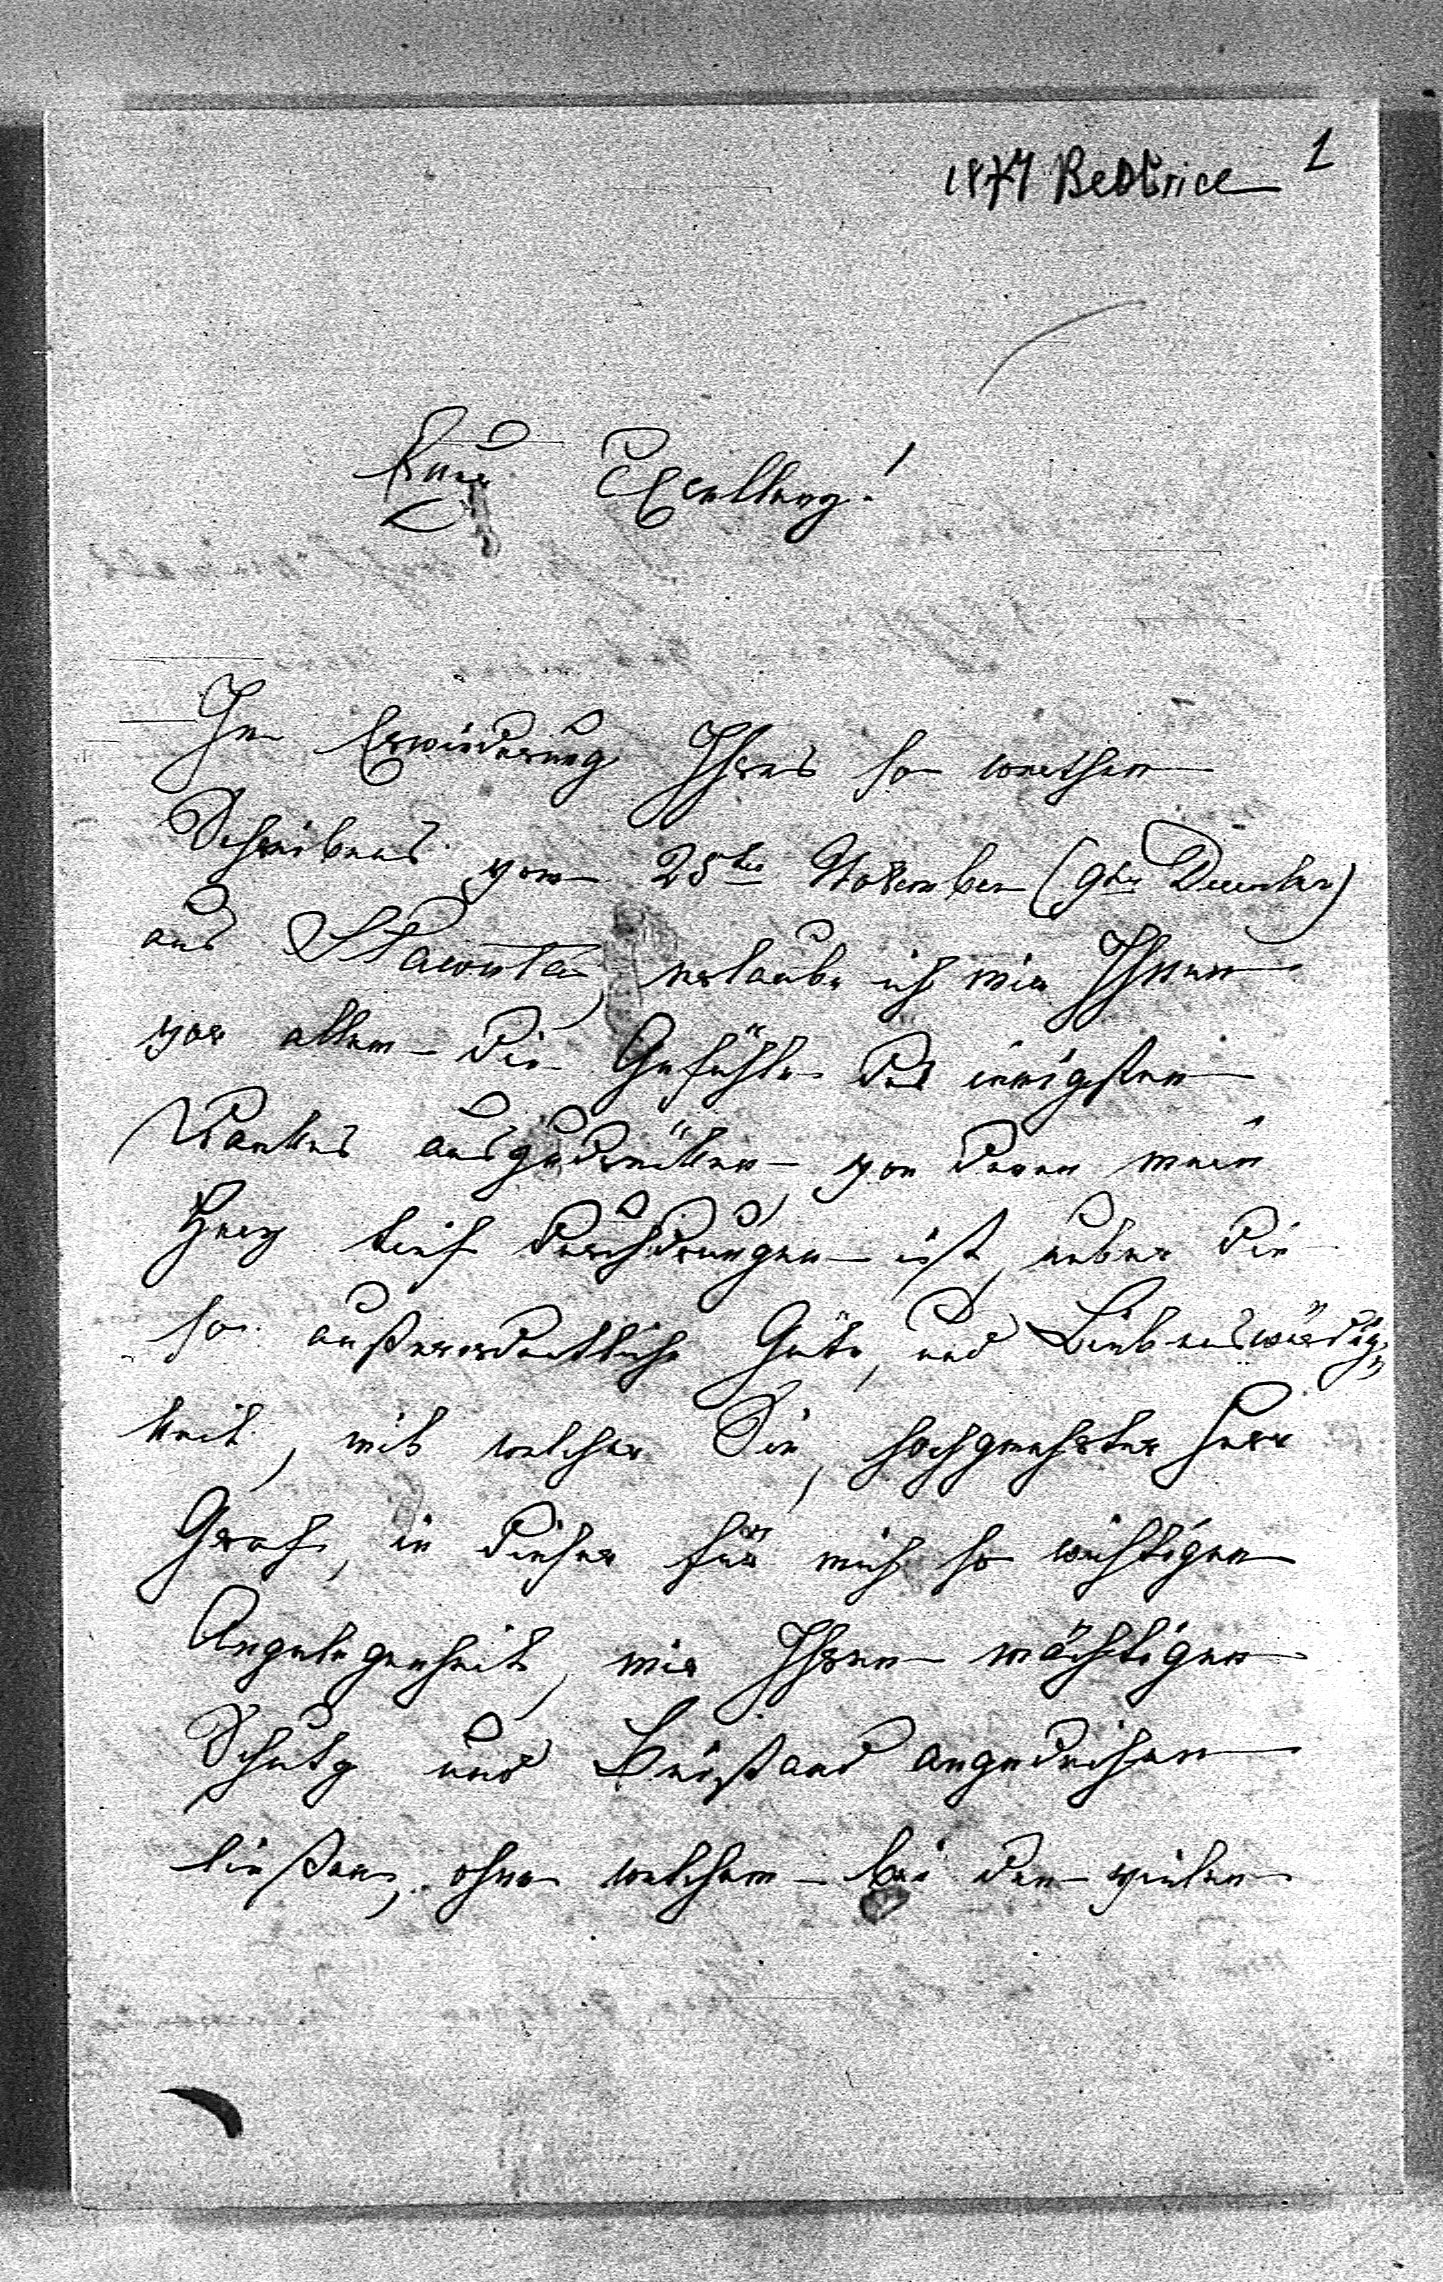 1877 Beatrice 1
Eure Excellenz!
In Erwiederung Ihres so werthen
Schreibens vom 25ten November (9ten December)
aus Slawuta, erlaube ich mir Ihnen
vor allem die Gefühle des innigsten
Dankes auszudrükken, von denen mein
Herz tief durchdrungen ist, ueber die
so außerordentliche Güte, und Liebenswürdig-
keit, mit welcher Sie, hochgeehrter Herr
Graf, in dieser für mich so wichtigen
Angelegenheit, mir Ihren mächtigen
Schutz und Beistand angedeihen
ließen, ohne welchem bei den vielen